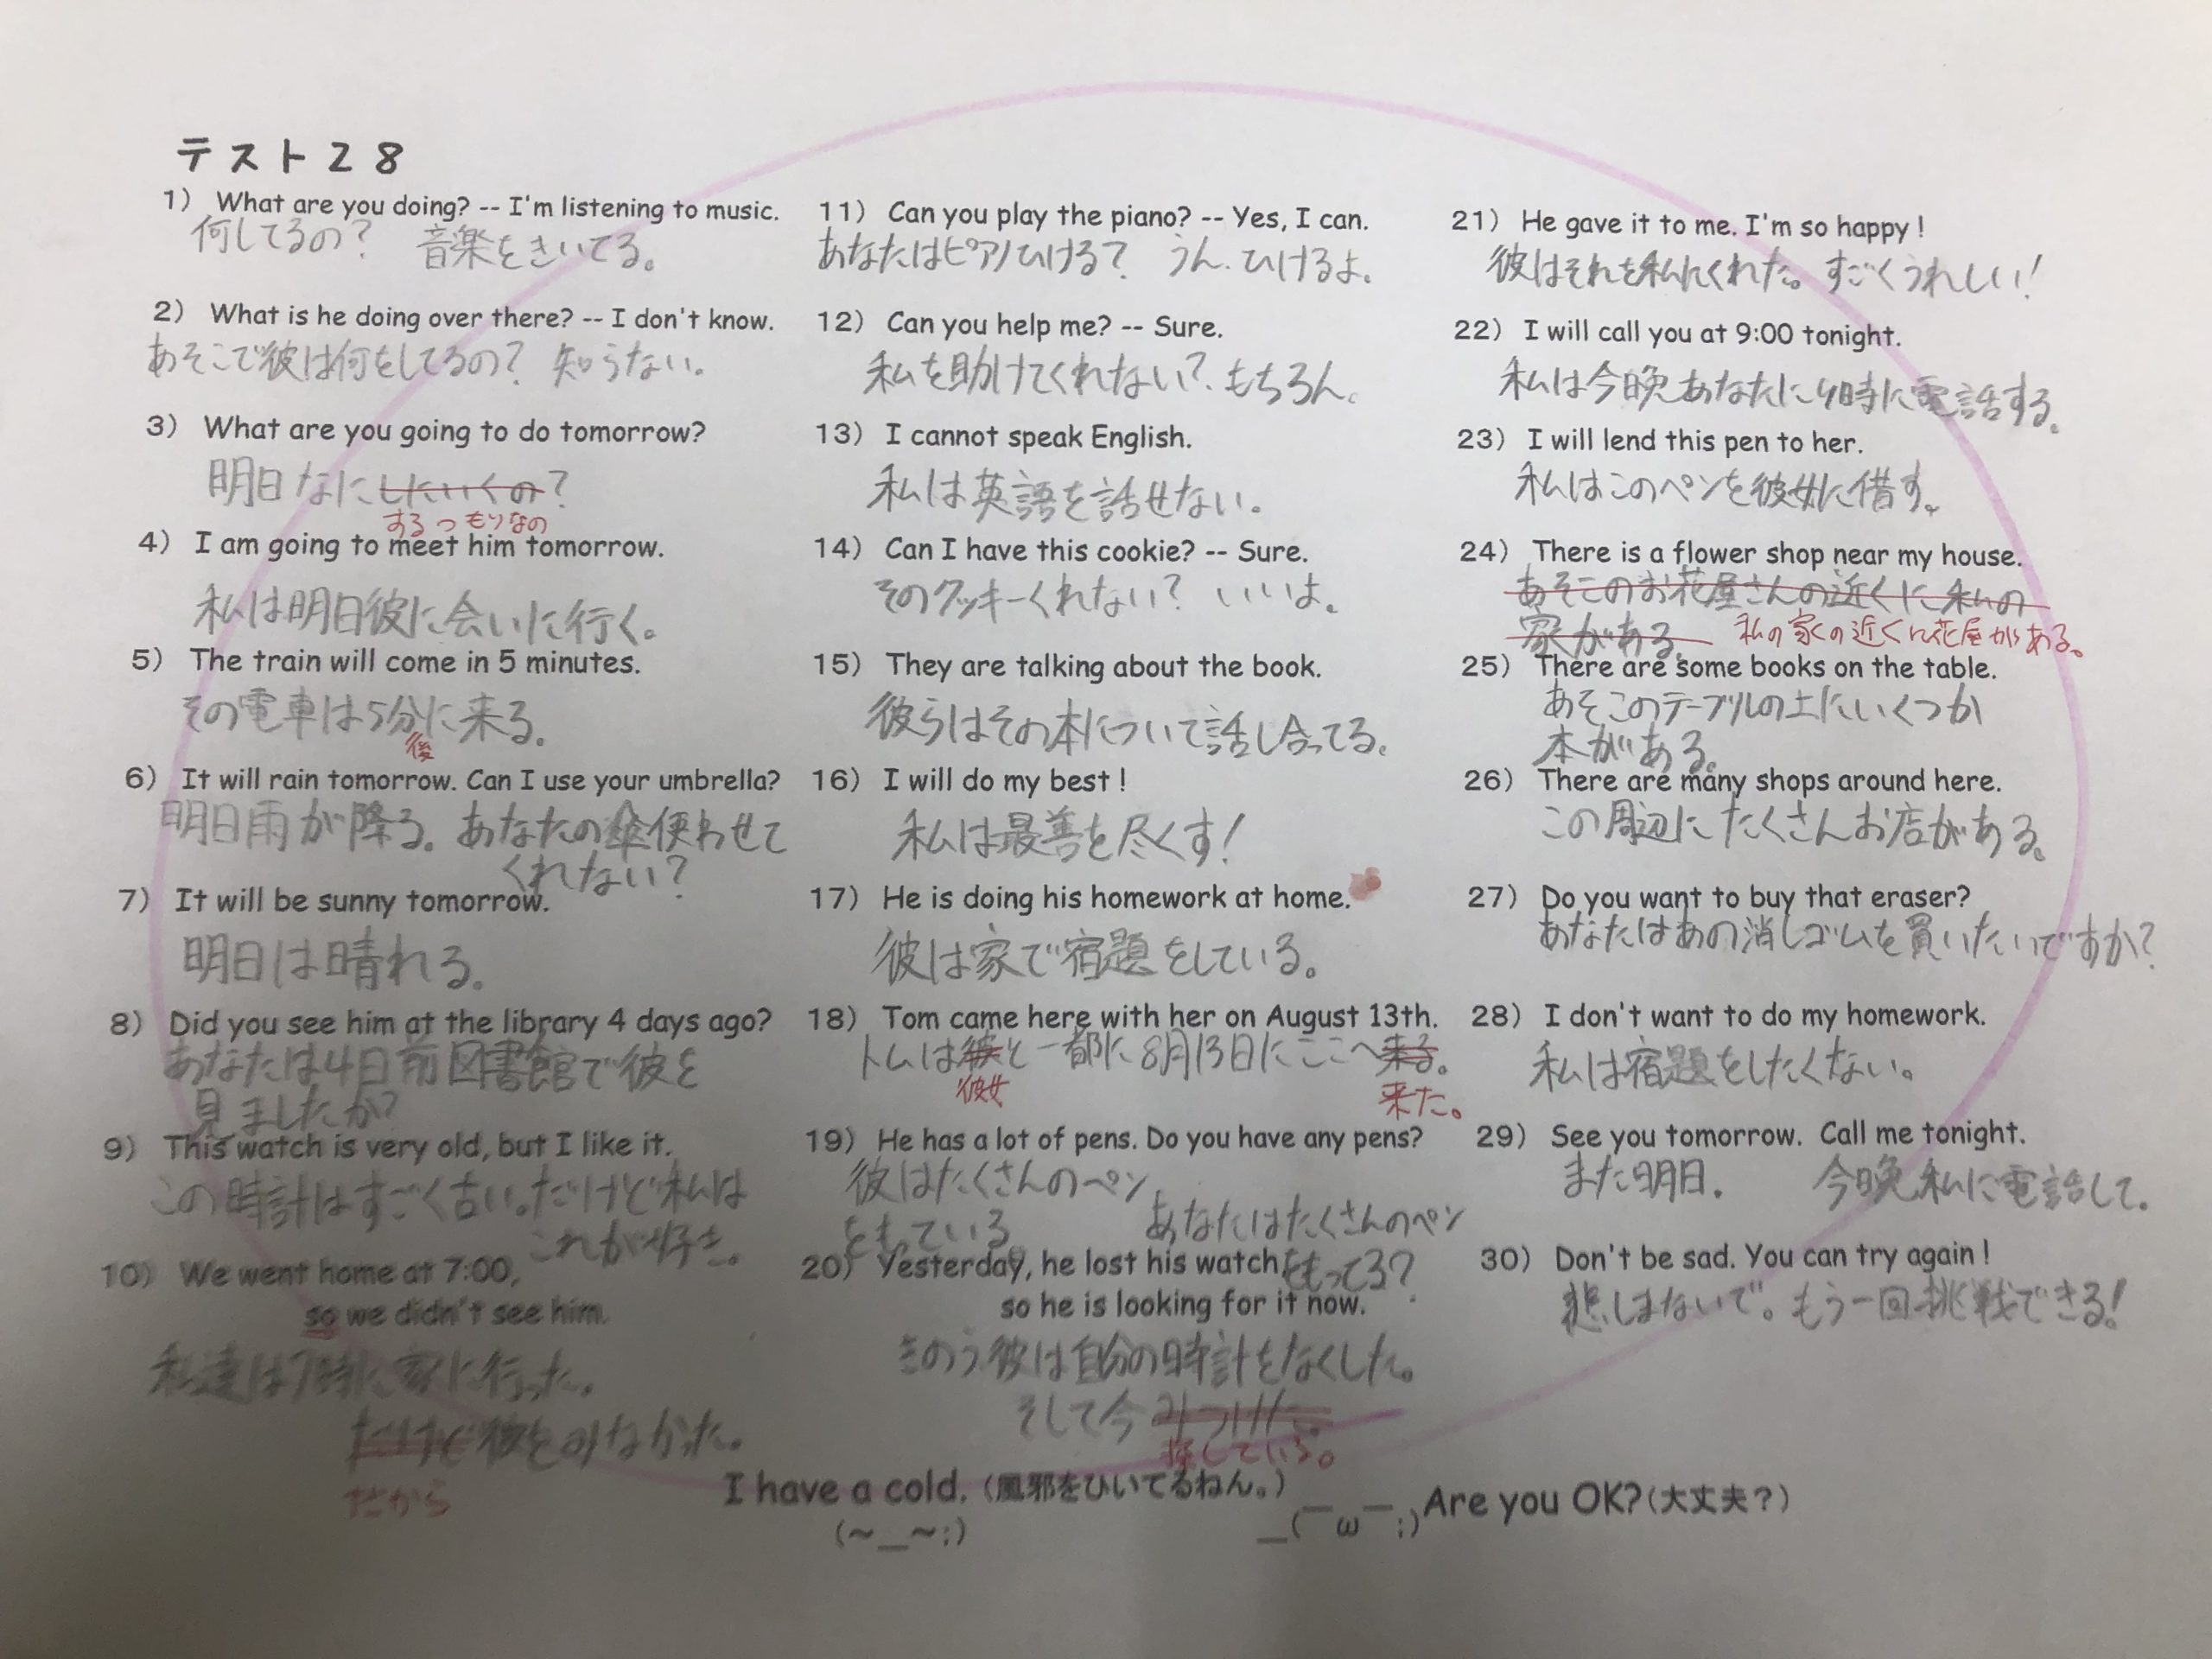 テスト２８
1) What are you doing? -- I'm listening to music.
何してるの？ 音楽をきいてる。
2) What is he doing over there? -- I don't know.
あそこで彼は何をしてるの？ 知らない。
3) What are you going to do tomorrow?
明日なにしにいくの？
するつもりなの
4) I am going to meet him tomorrow.
私は明日彼に会いに行く。
5) The train will come in 5 minutes.
その電車は5分に来る。
後
6) It will rain tomorrow. Can I use your umbrella?
明日雨が降る。あなたの傘使わせて
くれない？
7) It will be sunny tomorrow.
明日は晴れる。
8) Did you see him at the library 4 days ago?
あなたは4日前図書館で彼を
見ましたか？
9) This watch is very old, but I like it.
この時計はすごく古い。だけど私は
これが好き。
10) We went home at 7:00,
so we didn't see him.
私達は7時に家に行った。
だけど彼をみなかった。
だから
11) Can you play the piano? -- Yes, I can.
あなたはピアノひける？ うん、ひけるよ。
12) Can you help me? -- Sure.
私を助けてくれない？ もちろん。
13) I cannot speak English.
私は英語を話せない。
14) Can I have this cookie? -- Sure.
そのクッキーくれない？ いいよ。
15) They are talking about the book.
彼らはその本について話し合ってる。
16) I will do my best !
私は最善を尽くす！
17) He is doing his homework at home.
彼は家で宿題をしている。
18) Tom came here with her on August 13th.
トムは彼と一都に8月13日にここへ来る。
彼女 来た。
19) He has a lot of pens. Do you have any pens?
彼はたくさんのペン
をもっている あなたはたくさんのペン
をもってる？
20) Yesterday, he lost his watch,
so he is looking for it now.
きのう彼は自分の時計をなくした。
そして今みつけた。
探している。
21) He gave it to me. I'm so happy !
彼はそれを私にくれた。すごくうれしい！
22) I will call you at 9:00 tonight.
私は今晩あなたに9時に電話する。
23) I will lend this pen to her.
私はこのペンを彼女に借す。
24) There is a flower shop near my house.
あそこのお花屋さんの近くに私の
家がある。 私の家の近くに花屋がある。
25) There are some books on the table.
あそこのテーブルの上にいくつか
本がある。
26) There are many shops around here.
この周辺にたくさんお店がある。
27) Do you want to buy that eraser?
あなたはあの消しゴムを買いたいですか？
28) I don't want to do my homework.
私は宿題をしたくない。
29) See you tomorrow. Call me tonight.
また明日。 今晩私に電話して。
30) Don't be sad. You can try again !
悲しまないで。もう一回挑戦できる！
I have a cold. (風邪をひいてるねん。)
(~__~;)
__(￣ω￣;) Are you OK? (大丈夫？)